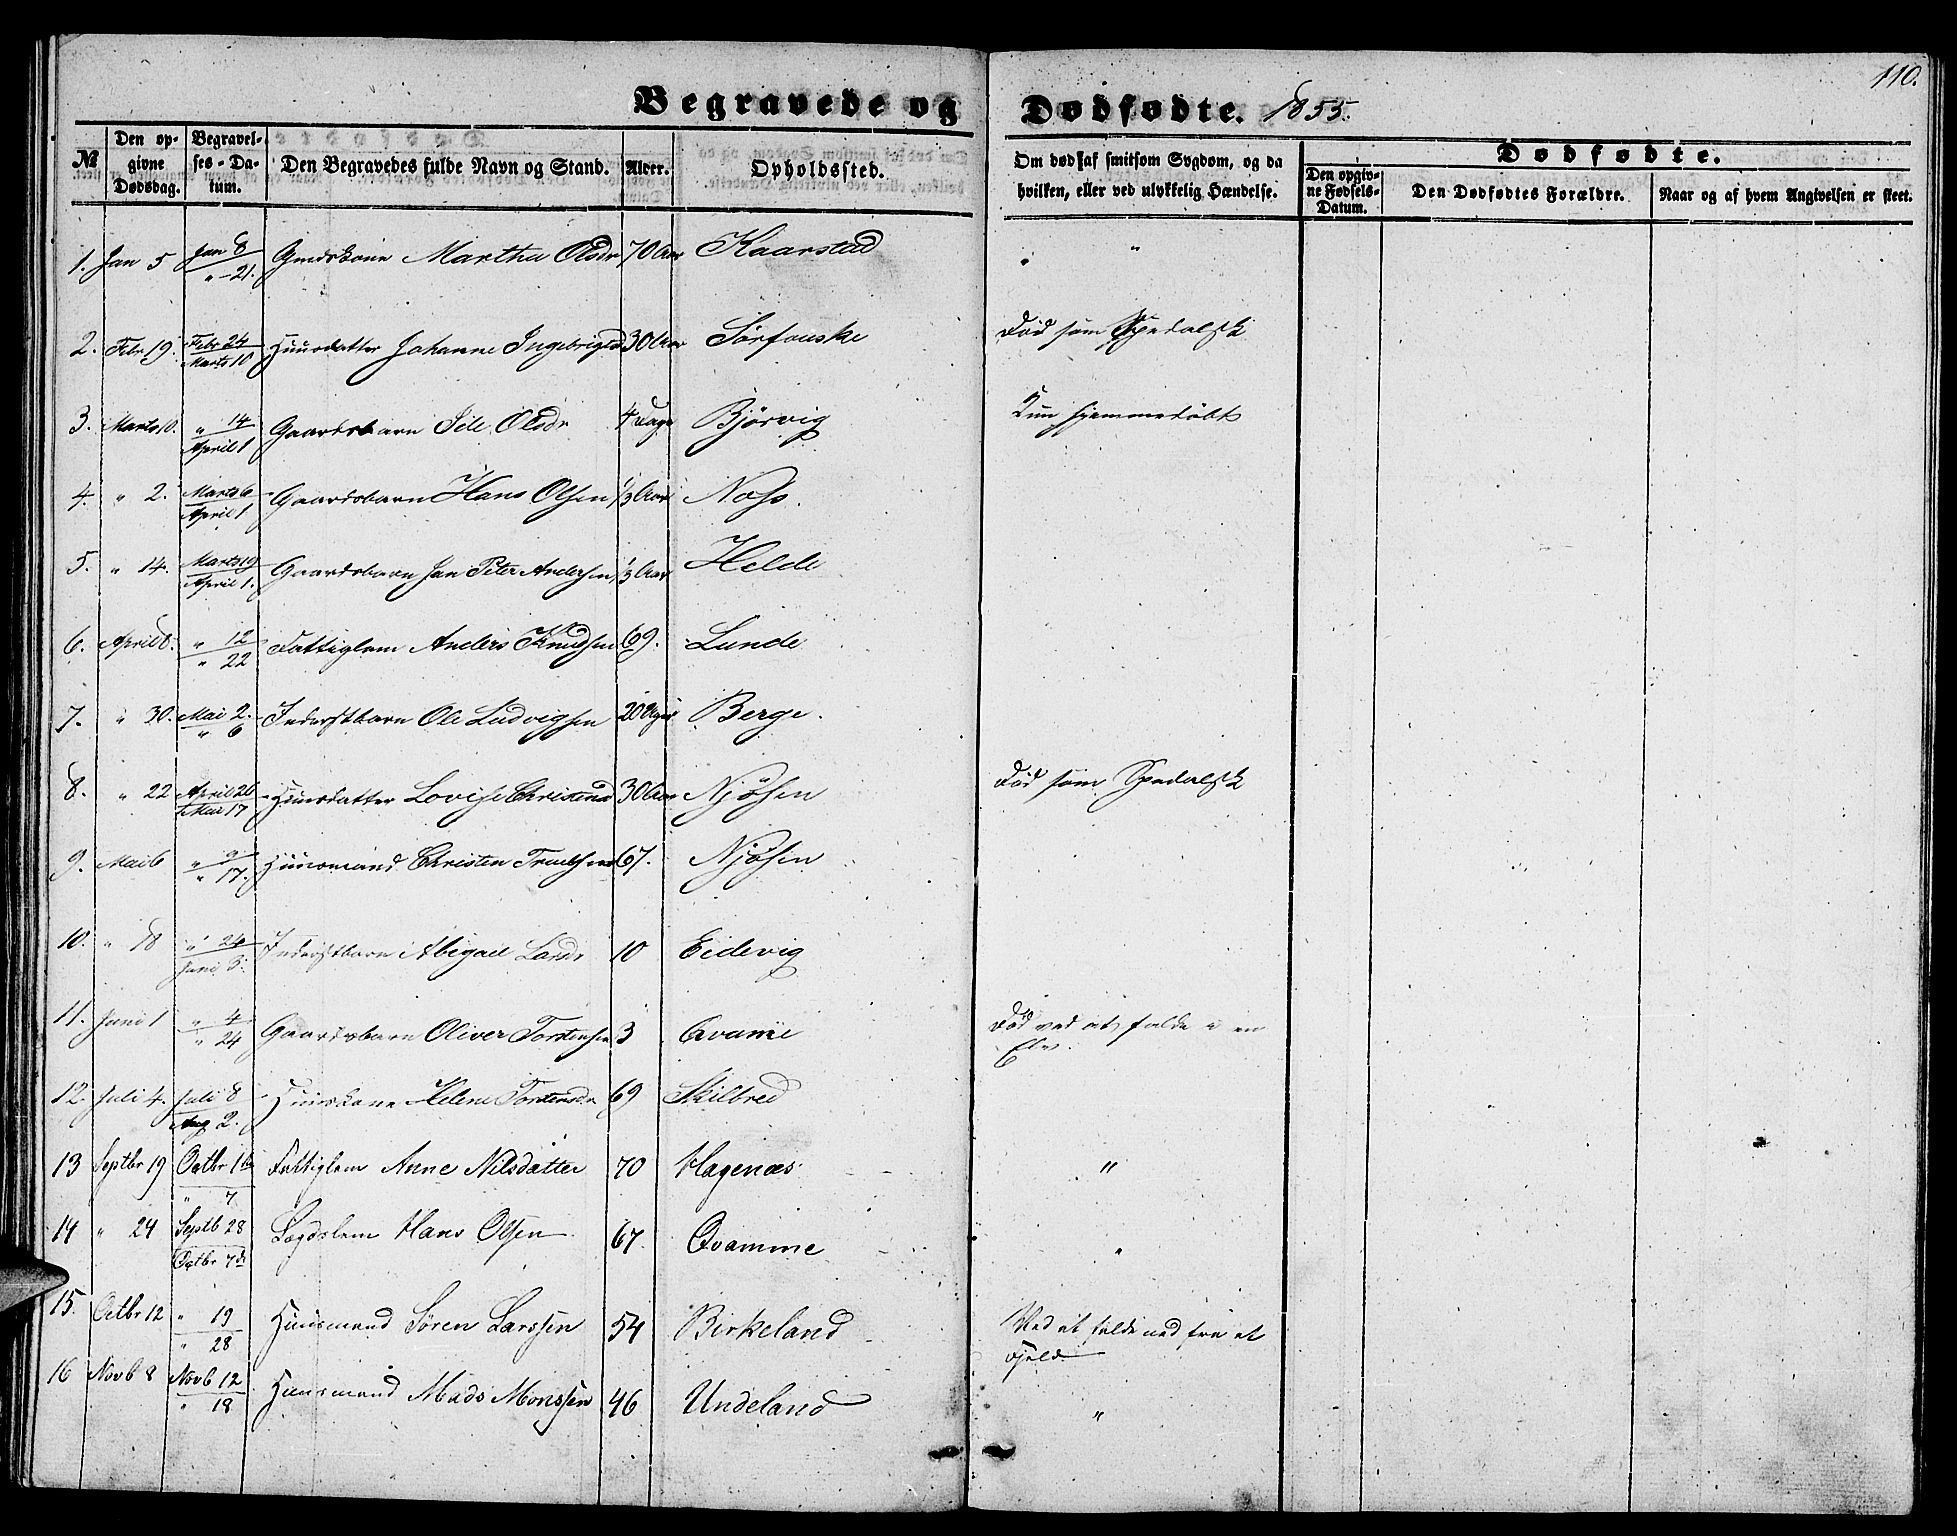 110.
Begravede og Dødfødte. 1855.
№
Den opgivne Dødsdag.
Begravelses-Datum.
Den Begravedes fulde Navn og Stand.
Alder.
Opholdssted.
Om død af smitsom Sygdom, og da hvilken, eller ved ulykkelig Hændelse.
Dødfødte.
Den opgivne Fødsels-Datum.
Den Dødfødtes Forældre.
Naar og af hvem Angivelsen er skeet.
1. Jan 5 Jan 8 / " 21. Martha Olsdr 70 Aar Kaarstad "
2. Febr 19. Febr 24 / Marts 10 Huusdatter Johanne Ingebrigtsd 30 Aar Sørfonske Død som Spedalsk
3. Marts 10. " 14 / April 1 Gaardsbarn Sile Olsdr 4 Dage Bjørvig Kun hjemmedøbt
4. " 2. Marts 6 / April 1 Gaardsbarn Hans Olsen 1/3 Aar Noss.
5. " 14. Marts 19 / April 1. Gaardsbarn Jan Peter Andersen 1/3 Aar Helde
6. April 8. " 12 / " 22 Fattiglem Anders Knudsen 69. Lunde
7. " 30. Mai 2. / " 6 Inderstbarn Ole Ludvigsen 20 Uger Berge.
8. " 22 April 26 / Mai 17 Huusdatter Lovise Christensd 30 Aar Njøsen Død som Spedalsk
9. Mai 6 " 9 / " 17. Huusmand Christen Truelsen 67. Njøsen
10. " 18 " 24 / Juni 3. Inderstbarn Abigael Larsdr 10 Eidevig
11. Juni 1 " 4 / " 24 Gaardsbarn Oliver Torstensen 3 Qvamme Død ved at falde i en
Elv.
12. Juli 4. Juli 8 / Aug 2. Huuskone Helene Torstensdr 69 Skilbred
13 Septbr 19 Octbr 1ste / " 7 Fattiglem Anne Nilsdatter 70 Hagenæs "
14 " 24 Septb 28 / Octbr 7de Lægdslem Hans Olsen 67 Qvamme "
15. Octbr 12 " 19 / " 28 Huusmand Søren Larssen 54 Birkeland Ved at falde ned fra et
Fjeld
16 Novb 8 Novb 12 / " 18 Huusmand Mads Monssen 46 Undeland "